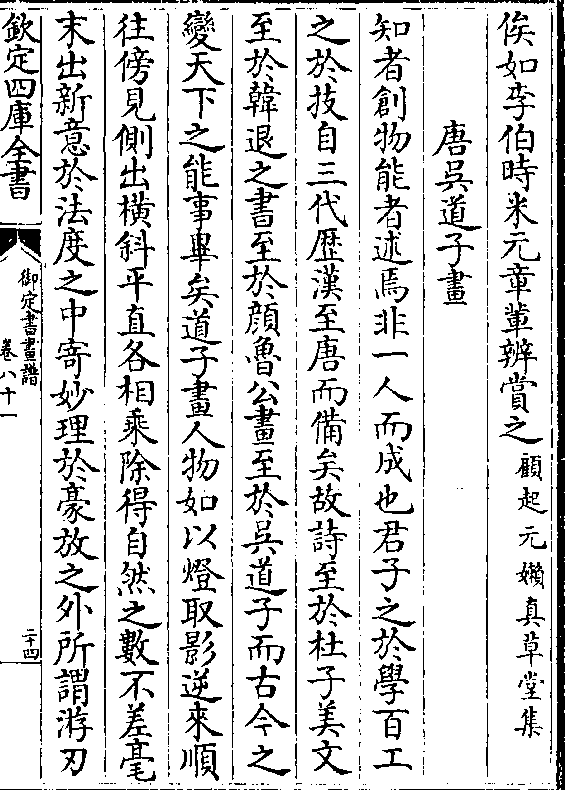 俟如李伯時米元章輩辨賞之顧起元嬾真草堂集
唐吳道子畫
知者創物能者述焉非一人而成也君子之於學百工
之於技自三代歷漢至唐而備矣故詩至於杜子美文
至於韓退之書至於顏魯公畫至於吳道子而古今之
變天下之能事畢矣道子畫人物如以燈取影逆來順
往傍見側出橫斜平直各相乘除得自然之數不差毫
末出新意於法度之中寄妙理於豪放之外所謂游刃
欽定四庫全書
御定書畫譜
卷八十一
二十四